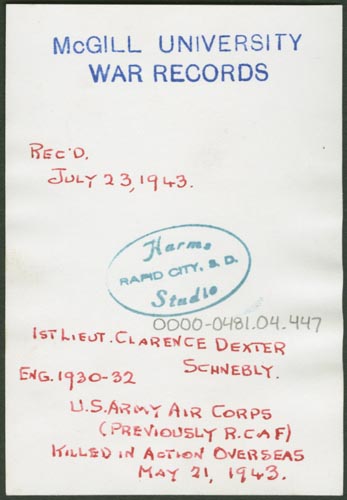 McGILL UNIVERSITY
WAR RECORDS
REC'D.
JULY 23, 1943.
Harms
RAPID CITY, S. D.
Studio
0000-0481.04.447
1ST LIEUT. CLARENCE DEXTER
SCHNEBLY.
ENG. 1930-32
U.S. ARMY AIR CORPS
(PREVIOUSLY R.C.A.F)
KILLED IN ACTION OVERSEAS
MAY 21, 1943.